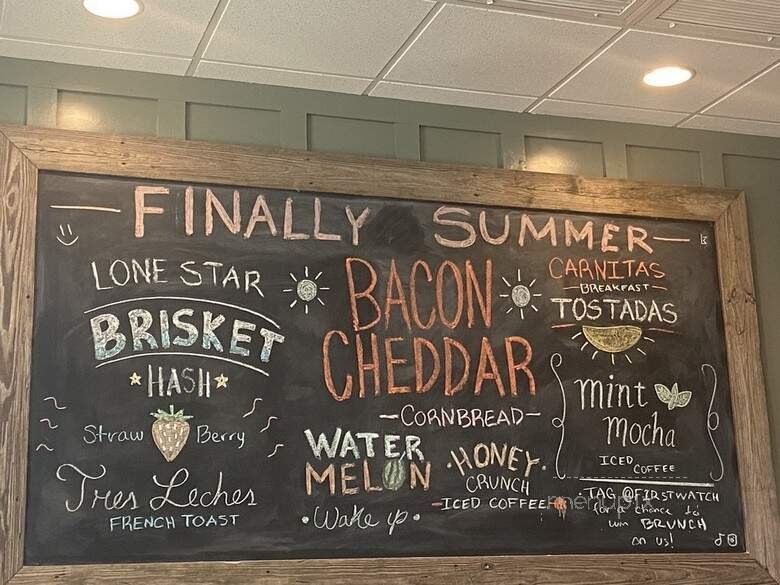 FINALLY SUMMER
LONE STAR
BRISKET
HASH
Straw Berry
Tres Leches
FRENCH TOAST
BACON
CHEDDAR
CORNBREAD
WATER
MELON
Wake up
HONEY
CRUNCH
ICED COFFEE
CARNITAS
BREAKFAST
TOSTADAS
mint
mocha
ICED
COFFEE
TAG @FIRSTWATCH
for a chance to
win BRUNCH
on us!